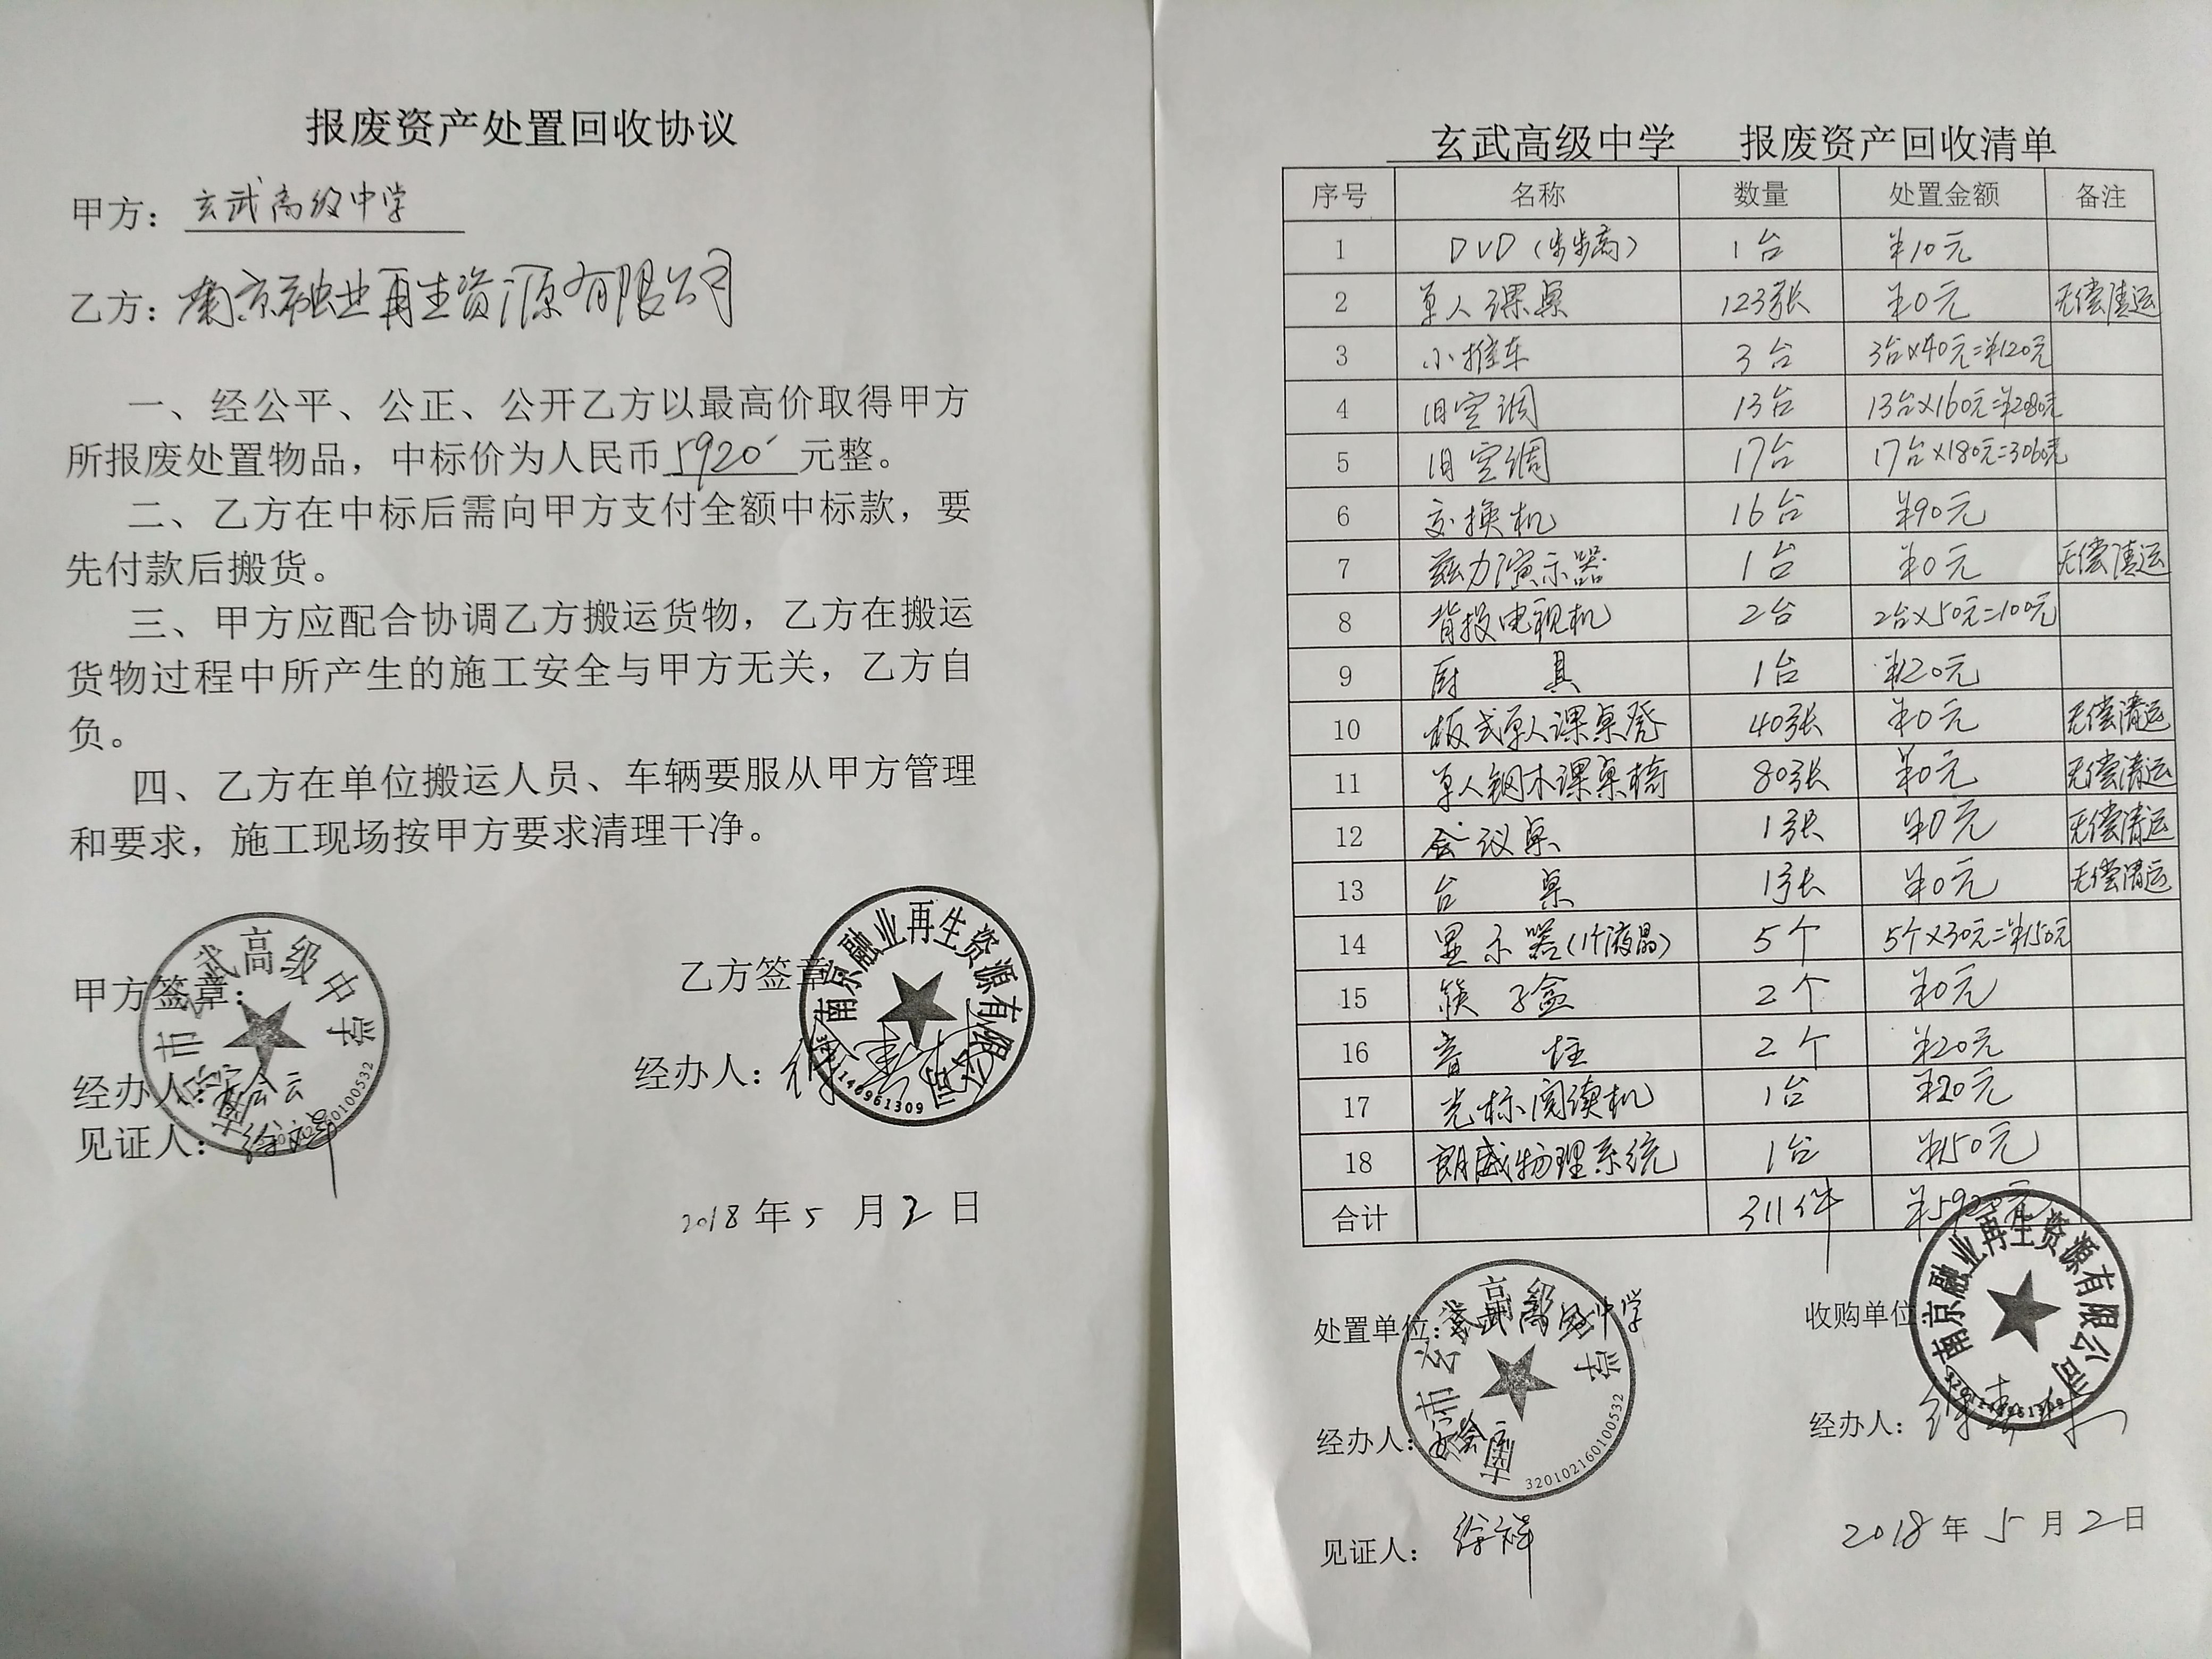 报废资产处置回收协议
甲方：玄武高级中学
乙方：南京融业再生资源有限公司
一、经公平、公正、公开乙方以最高价取得甲方
所报废处置物品，中标价为人民币5920元整。
二、乙方在中标后需向甲方支付全额中标款，要
先付款后搬货。
三、甲方应配合协调乙方搬运货物，乙方在搬运
货物过程中所产生的施工安全与甲方无关，乙方自
负。
四、乙方在单位搬运人员、车辆要服从甲方管理
和要求，施工现场按甲方要求清理干净。
甲方签章：
乙方签章
南京市玄武高级中学
南京融业再生资源有限公司
经办人：
经办人：
见证人：
2018年5月2日
玄武高级中学 报废资产回收清单
序号 名称 数量 处置金额 备注
1 DVD（步步高） 1台 ¥10元
2 单人课桌 123张 ¥0元 无偿清运
3 小推车 3台 3台×40元=¥120元
4 旧空调 13台 13台×160元=¥2080元
5 旧空调 17台 17台×180元=3060元
6 交换机 16台 ¥90元
7 磁力演示器 1台 ¥0元 无偿清运
8 背投电视机 2台 2台×50元=100元
9 厨具 1台 ¥120元
10 板式单人课桌凳 40张 ¥0元 无偿清运
11 单人钢木课桌椅 80张 ¥0元 无偿清运
12 会议桌 1张 ¥0元 无偿清运
13 台桌 1张 ¥0元 无偿清运
14 显示器（1个液晶） 5个 5个×30元=¥150元
15 筷子盒 2个 ¥0元
16 音柱 2个 ¥20元
17 光标阅读机 1台 ¥20元
18 朗威物理系统 1台 ¥150元
合计 311件 ¥5920元
处置单位：玄武高级中学
收购单位
南京市玄武高级中学
3201021601005​32
南京融业再生资源有限公司
经办人：
经办人：
见证人：徐祥
2018年5月2日